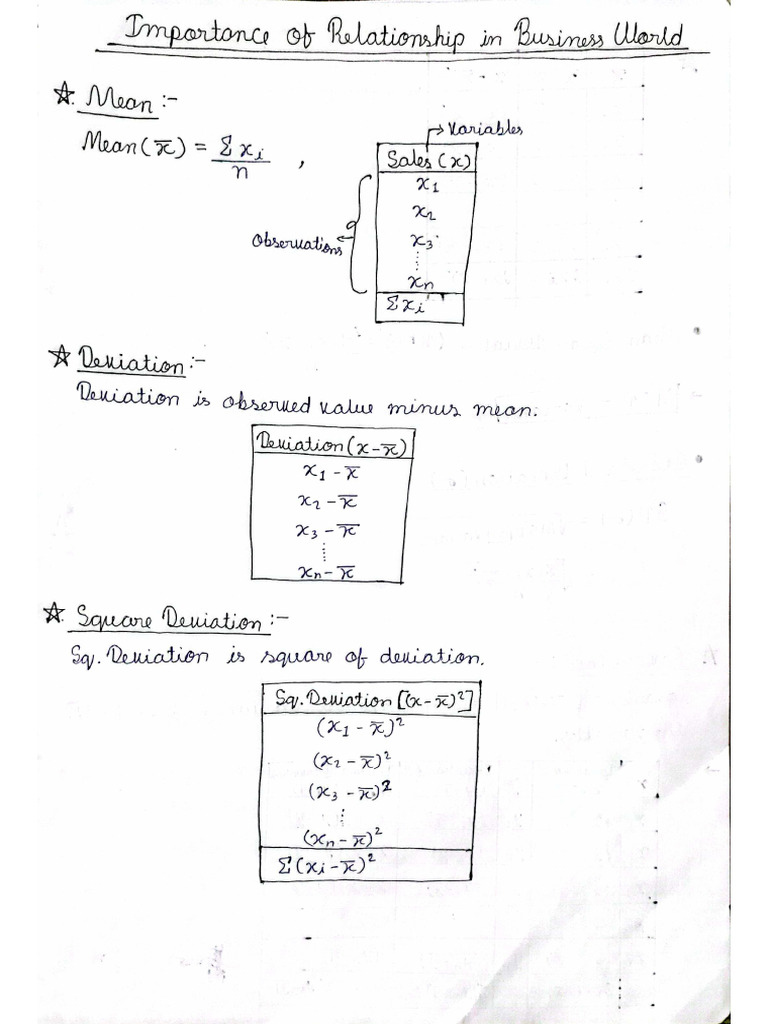 Importance of Relationship in Business World
☆. Mean :-
Mean(x̄) = Σxi / n ,
→ Variables
Sales (x)
x1
x2
Observations
x3
⋮
xn
Σxi
☆ Deviation :-
Deviation is observed value minus mean.
Deviation (x-x̄)
x1 - x̄
x2 - x̄
x3 - x̄
⋮
xn - x̄
☆. Square Deviation :-
Sq. Deviation is square of deviation.
Sq. Deviation [(x-x̄)²]
(x1 - x̄)²
(x2 - x̄)²
(x3 - x̄)²
⋮
(xn - x̄)²
Σ(xi - x̄)²